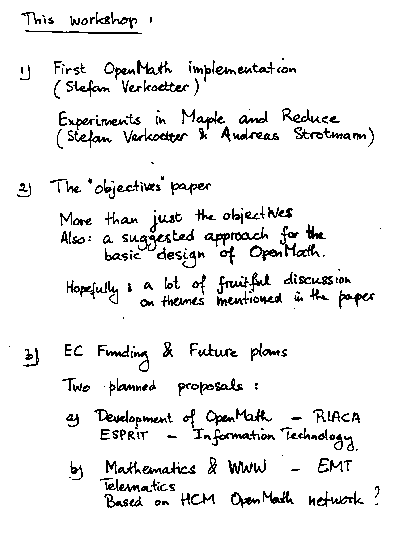 This workshop :
1) First OpenMath implementation
(Stefan Vorkoetter)
Experiments in Maple and Reduce
(Stefan Vorkoetter & Andreas Strotmann)
2) The "objectives" paper
More than just the objectives
Also: a suggested approach for the
basic design of OpenMath.
Hopefully : a lot of fruitful discussion
on themes mentioned in the paper
3) EC Funding & Future plans
Two planned proposals :
a) Development of OpenMath – RIACA
ESPRIT – Information Technology
b) Mathematics & WWW – EMT
Telematics
Based on HCM OpenMath network ?